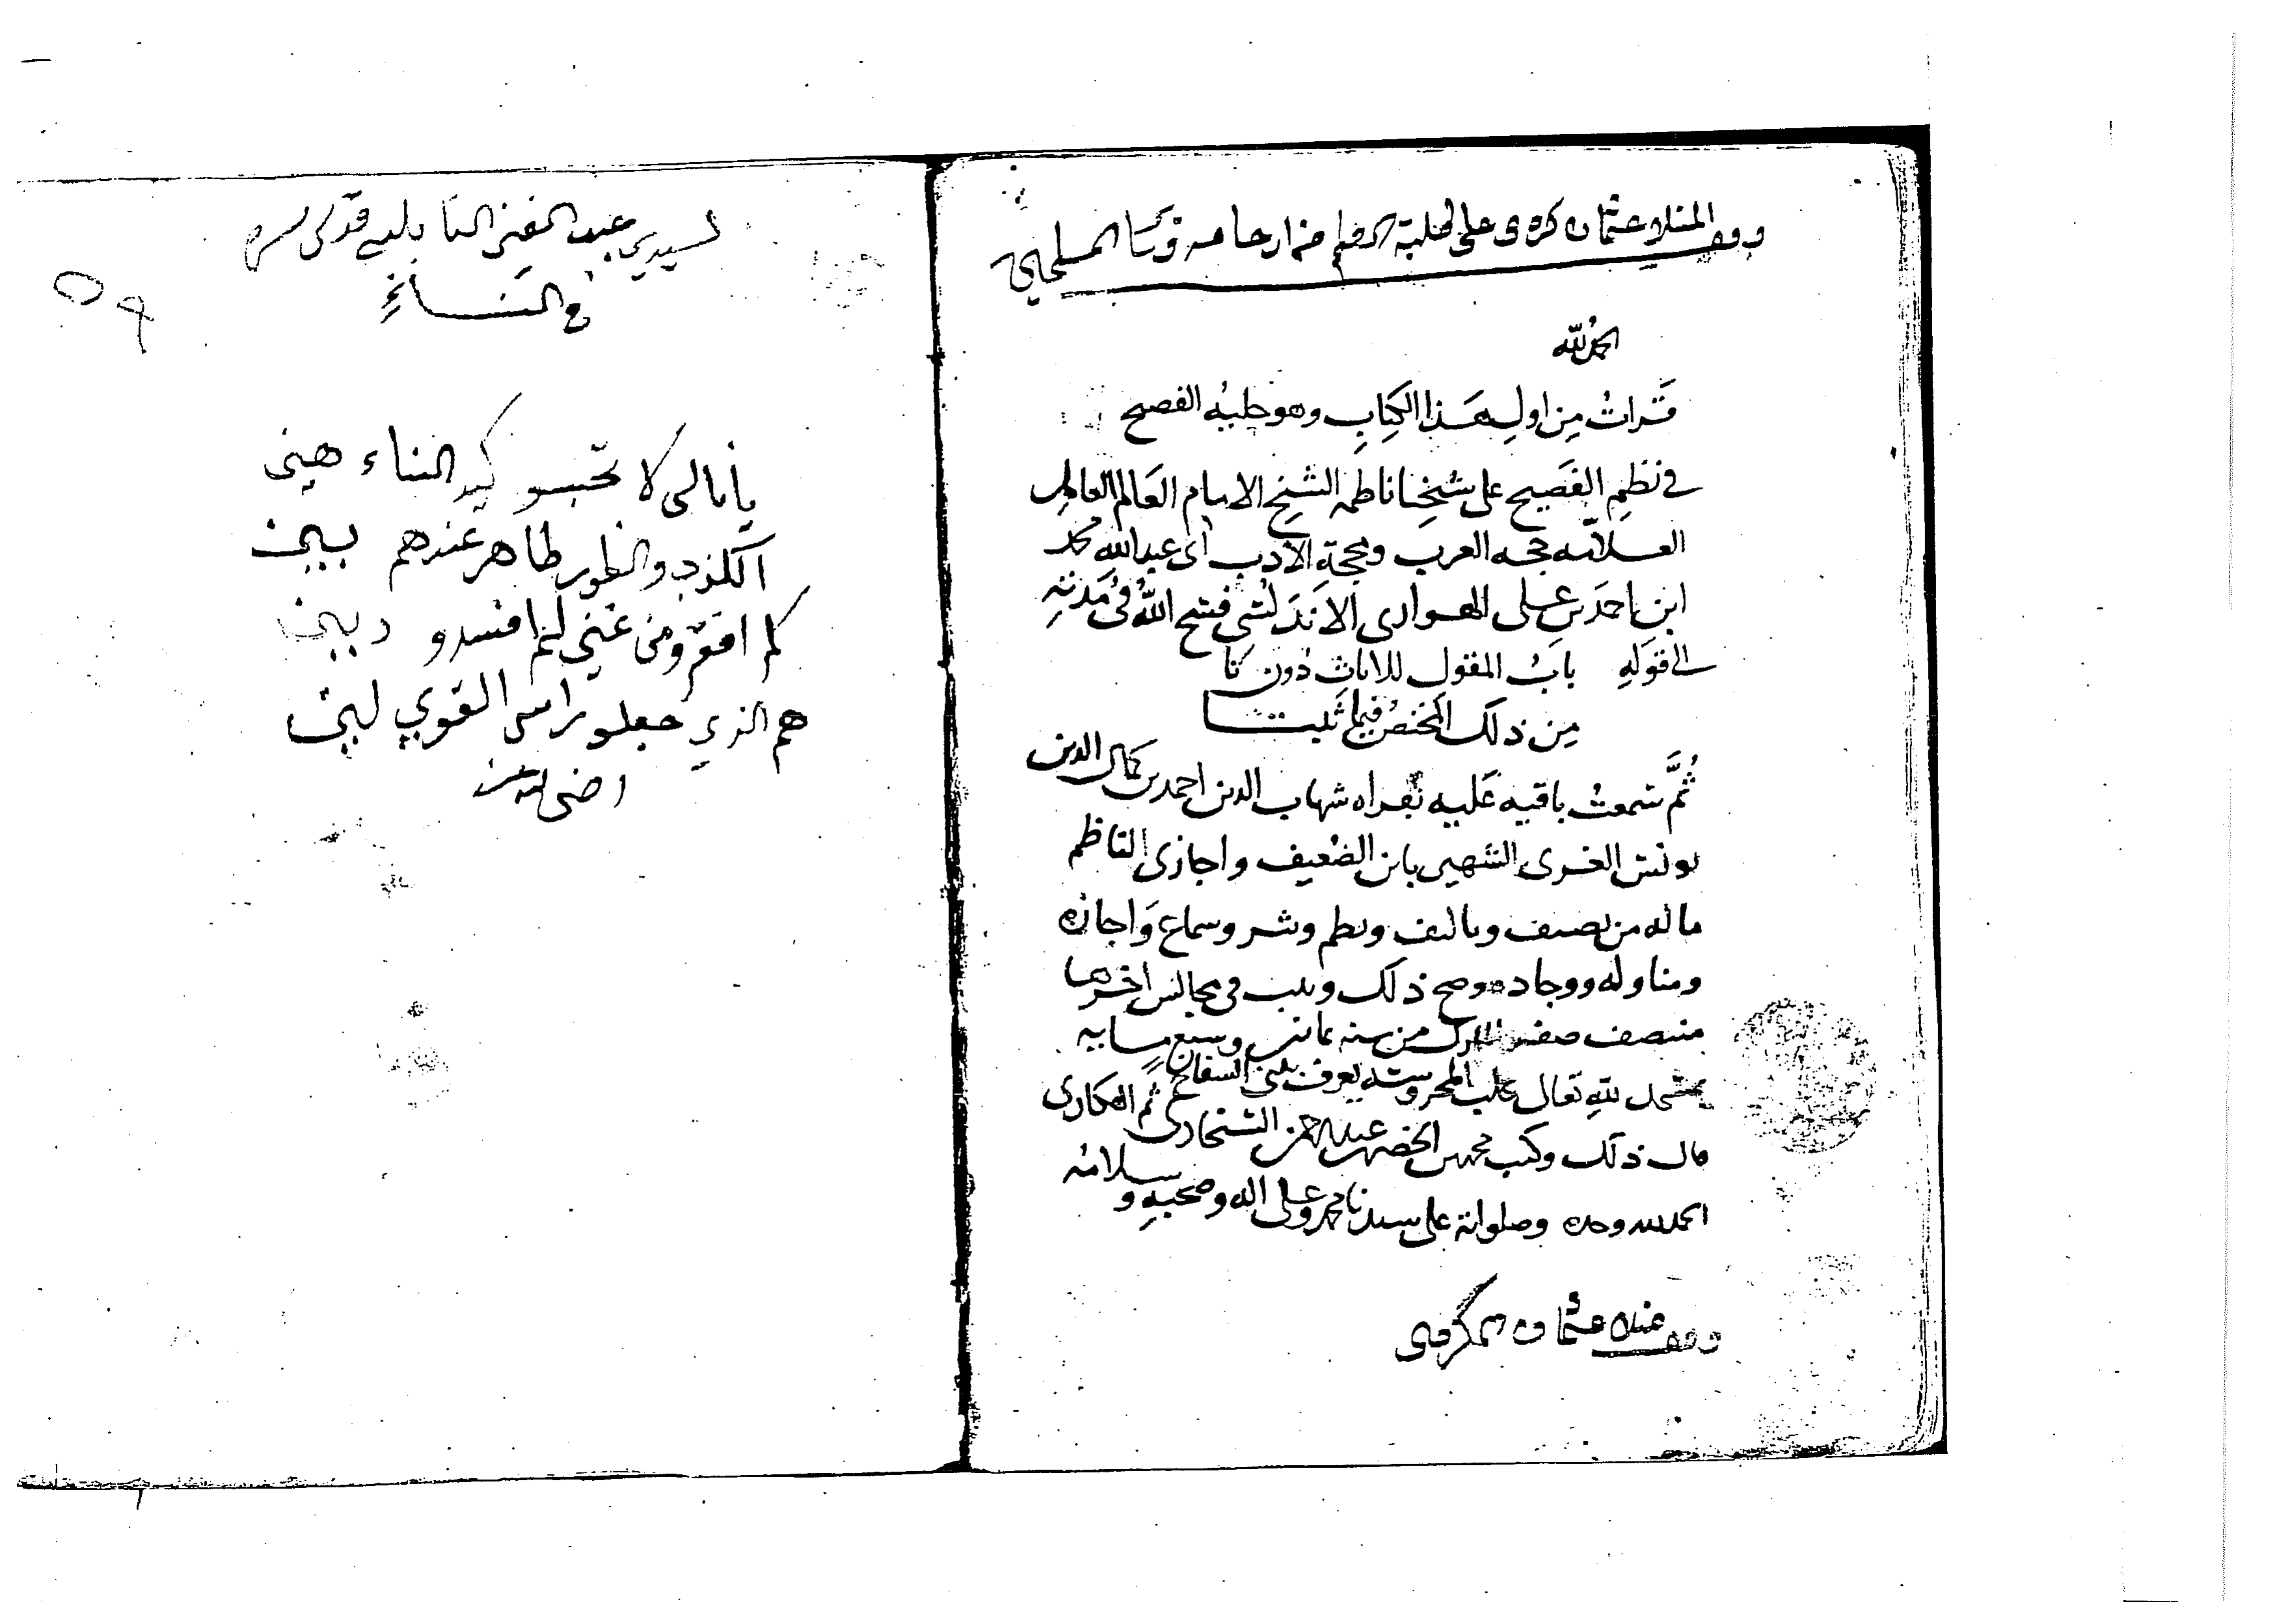 وقف المنلا عثمان كردى على طلبة العلم من ارحامه وقف المسلمين
الحمد لله
قرات من اول هذا الكتاب وهو حلية الفصيح
في نظم الفصيح على شيخنا ناظمه الشيخ الامام العالم العامل
العلامه حجه العرب ومحجة الادب ابى عبد الله محمد
ابن احمد بن على الهوارى الاندلسي فسح الله في مدته
الى قوله باب المقول للاناث دون تا
من ذلك المختص فيما ثبتا
ثم سمعت باقيه عليه بقراه شهاب الدين احمد بن كمال الدين
يونس الغزى الشهير بابن الضعيف واجازنى الناظم
ما له من تصنيف وتاليف ونظم ونثر وسماع واجازه
ومناوله ووجاده وصح ذلك وثبت في مجالس اخرها
منتصف صفر المبارك من سنه ثمانين وسبع مايه
بمسجد لله تعالى بحلب المحروسه يعرف ببنى السفاح
قال ذلك وكتب محمد بن الخضر بن عبد الرحمن السنجارى ثم الهكارى
الحمد لله وحده وصلواته على سيدنا محمد وعلى اله وصحبه وسلامه
وقف منلا عثمان الكردى
لسيدي عبد الغني النابلسي قدس سره
في النساء
٥٩
يا نالى لا تحسبو كيد النساء هيني
الكذب والظور ظاهر عندهم بيين
كم افقرو من غني كم افسدو ديين
هم الذي جعلو راس القوي ليين